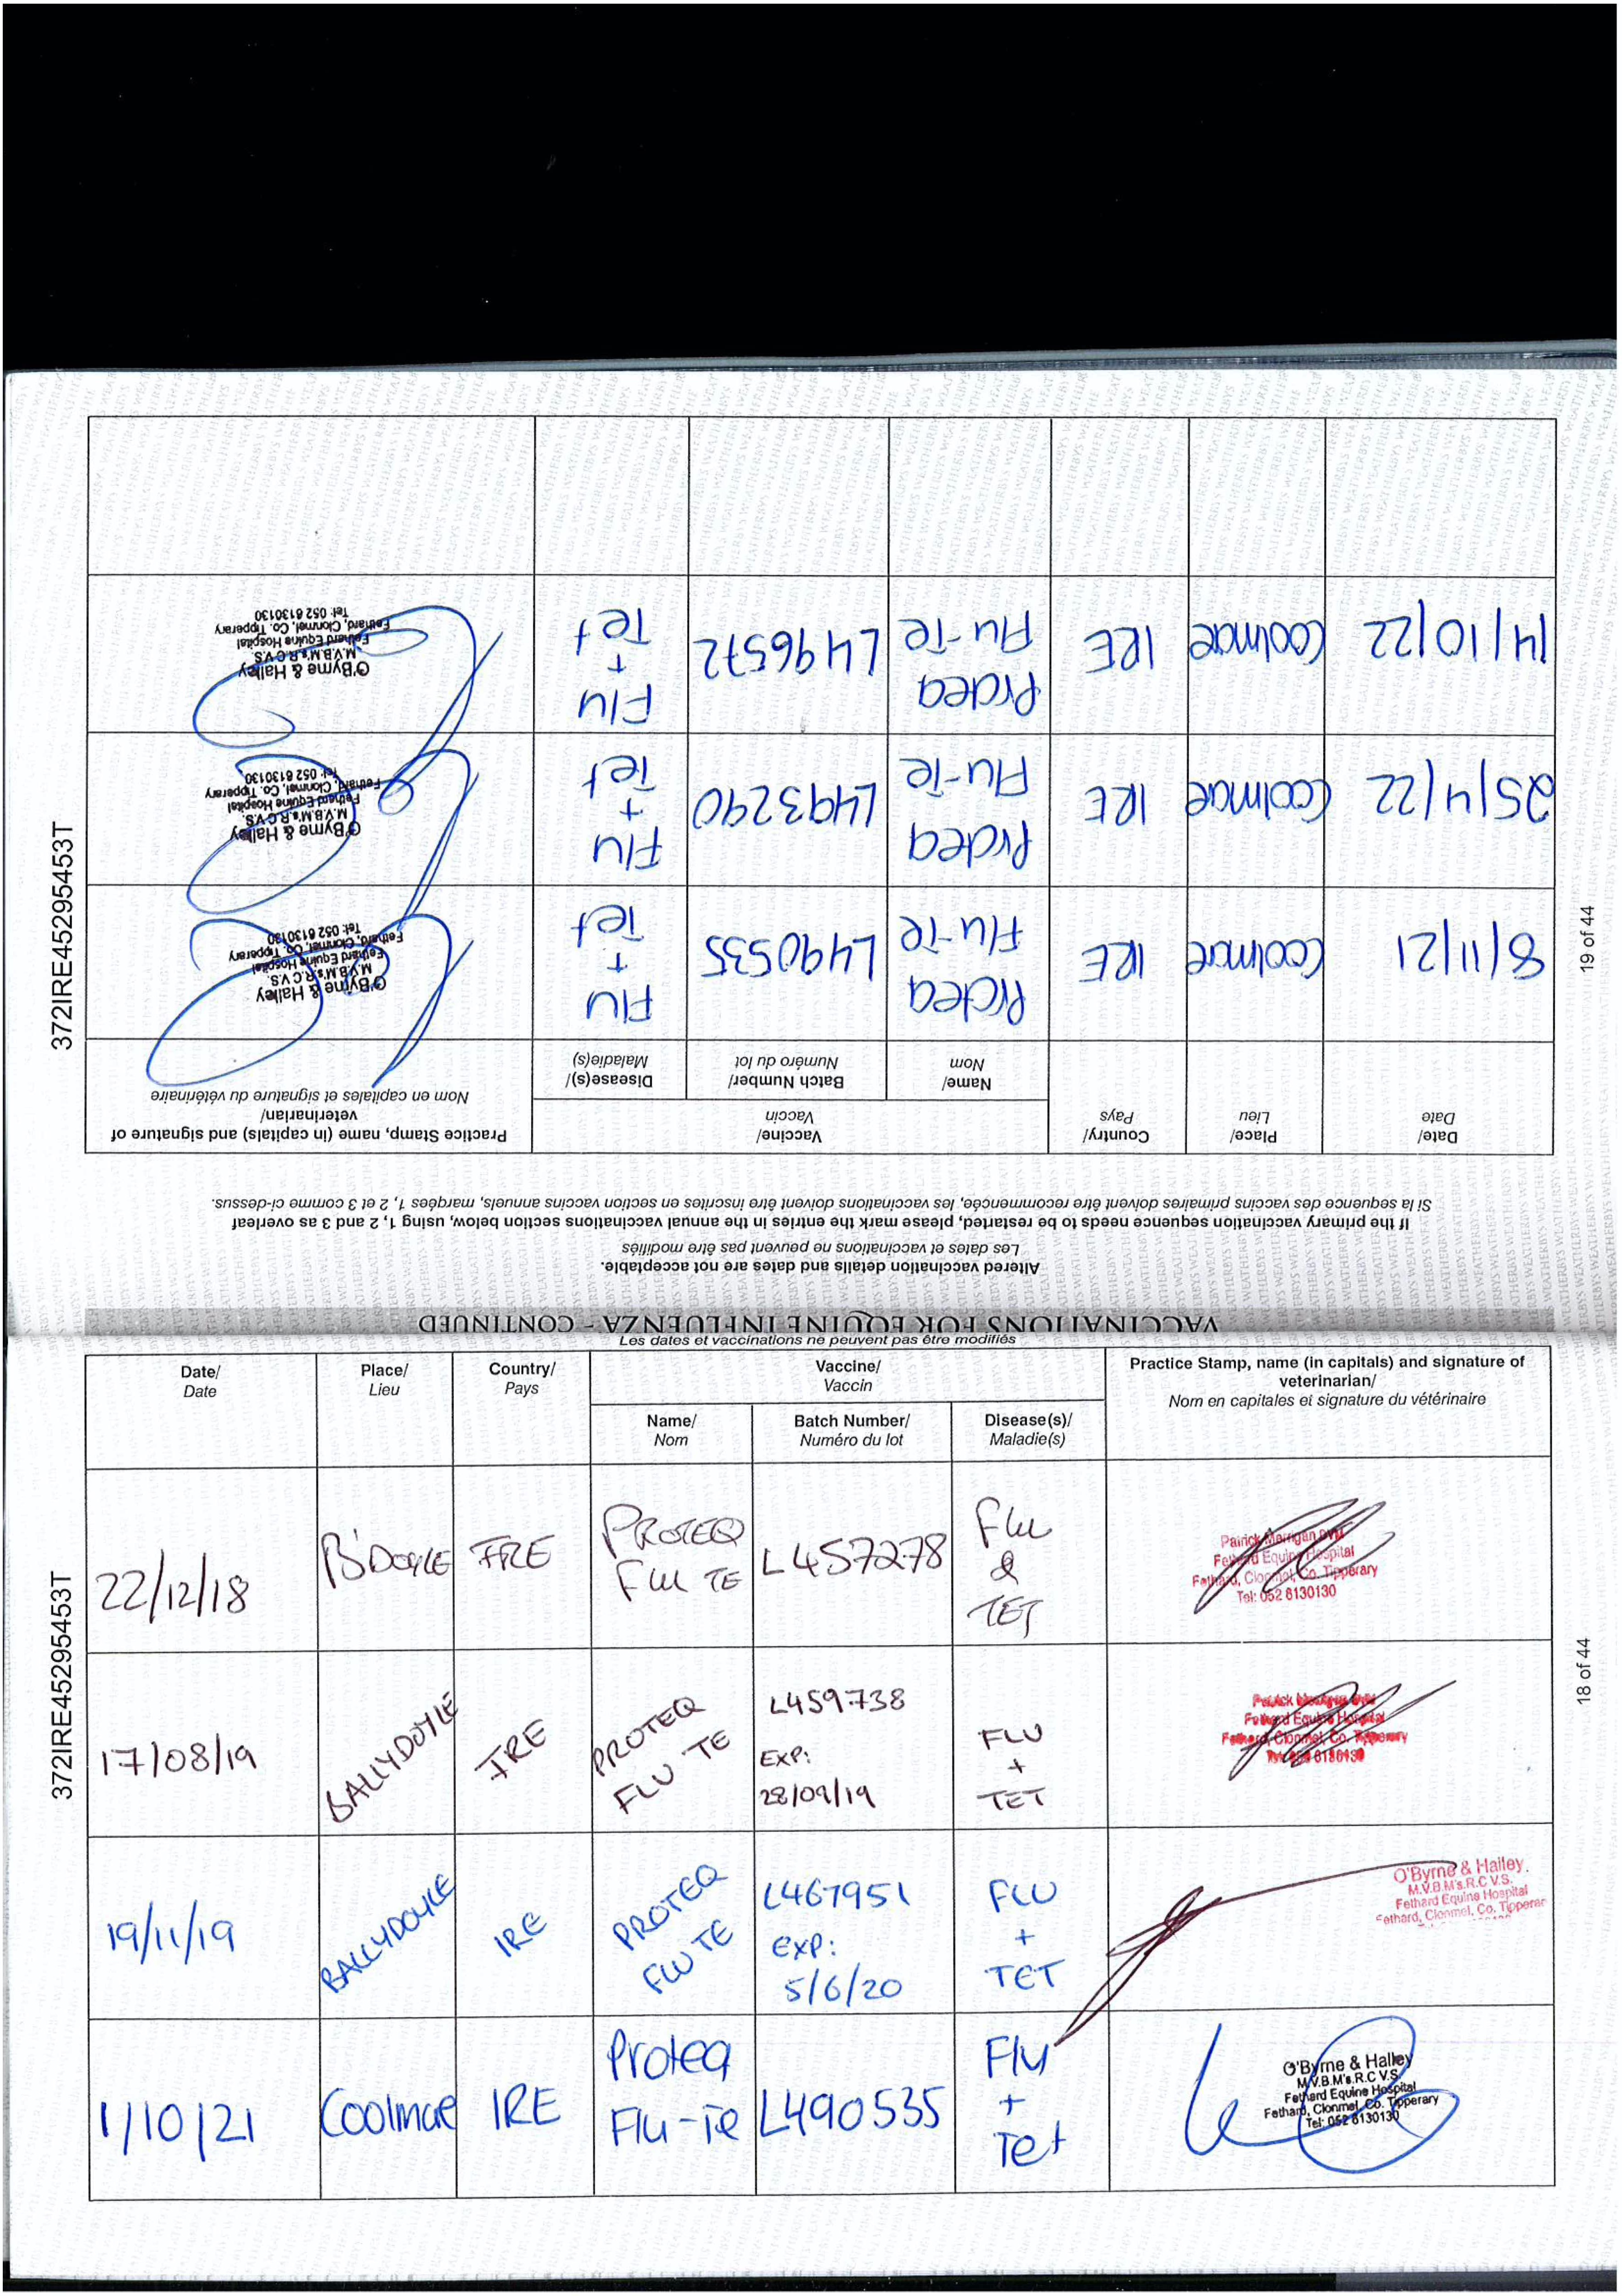 372IRE45295453T
18 of 44
Les dates et vaccinations ne peuvent pas être modifiés
Date/
Date
Place/
Lieu
Country/
Pays
Vaccine/
Vaccin
Name/
Nom
Batch Number/
Numéro du lot
Disease(s)/
Maladie(s)
Practice Stamp, name (in capitals) and signature of
veterinarian/
Nom en capitales et signature du vétérinaire
22/12/18
B'DOYLE
IRE
PROTEQ
FLU TE
L457278
Flu
&
TET
Patrick Merrigan DVM
Fethard Equine Hospital
Fethard, Clonmel, Co. Tipperary
Tel: 052 6130130
17/08/19
BALLYDOYLE
IRE
PROTEQ
FLU TE
L459738
EXP:
28/09/19
FLU
+
TET
Fethard Equine Hospital
Fethard, Clonmel, Co. Tipperary
19/11/19
BALLYDOYLE
IRE
PROTEQ
FLU TE
L467951
EXP:
5/6/20
FLU
+
TET
O'Byrne & Halley
M.V.B.M's.R.C V.S.
Fethard Equine Hospital
Fethard, Clonmel, Co. Tipperar
1/10/21
Coolmore
IRE
Proteq
Flu-Te
L490535
Flu
+
Tet
O'Byrne & Halley
M.V.B.M's.R.C V.S.
Fethard Equine Hospital
Fethard, Clonmel, Co. Tipperary
Tel: 052 6130130
372IRE45295453T
19 of 44
VACCINATIONS FOR EQUINE INFLUENZA - CONTINUED
Altered vaccination details and dates are not acceptable.
Les dates et vaccinations ne peuvent pas être modifiés
If the primary vaccination sequence needs to be restarted, please mark the entries in the annual vaccinations section below, using 1, 2 and 3 as overleaf
Si la sequence des vaccins primaires doivent être recommencée, les vaccinations doivent être inscrites en section vaccins annuels, marqées 1, 2 et 3 comme ci-dessus.
Date/
Date
Place/
Lieu
Country/
Pays
Vaccine/
Vaccin
Name/
Nom
Batch Number/
Numéro du lot
Disease(s)/
Maladie(s)
Practice Stamp, name (in capitals) and signature of
veterinarian/
Nom en capitales et signature du vétérinaire
8/11/21
Coolmore
IRE
Proteq
Flu-Te
L490535
Flu
+
Tet
O'Byrne & Halley
M.V.B.M's.R.C.V.S.
Fethard Equine Hospital
Fethard, Clonmel, Co. Tipperary
Tel: 052 6130130
25/4/22
Coolmore
IRE
Proteq
Flu-Te
L493290
Flu
+
Tet
O'Byrne & Halley
M.V.B.M's.R.C.V.S.
Fethard Equine Hospital
Fethard, Clonmel, Co. Tipperary
Tel: 052 6130130
14/10/22
Coolmore
IRE
Proteq
Flu-Te
L496572
Flu
+
Tet
O'Byrne & Halley
M.V.B.M's.R.C.V.S.
Fethard Equine Hospital
Fethard, Clonmel, Co. Tipperary
Tel: 052 6130130